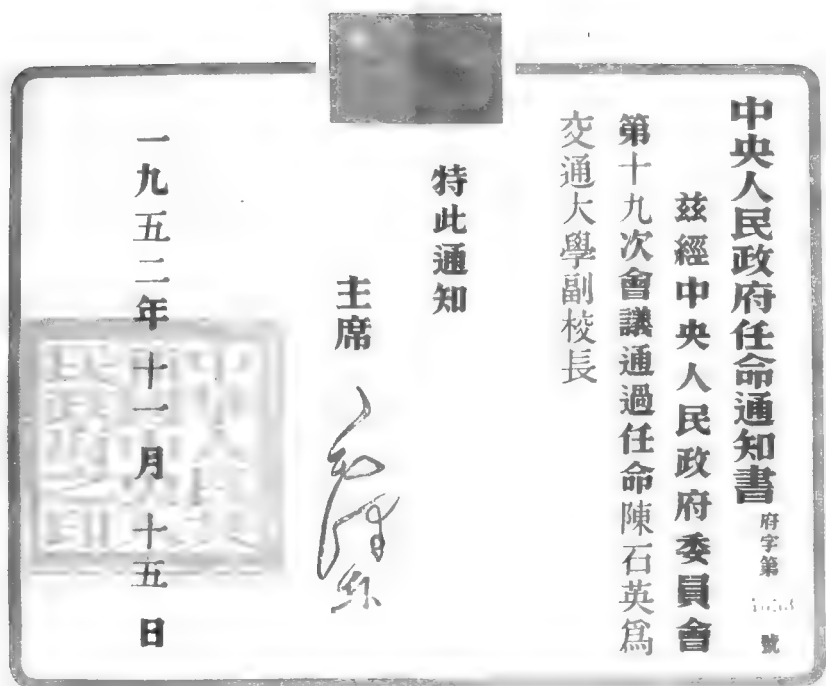 中央人民政府任命通知書
府字第 號
茲經中央人民政府委員會
第十九次會議通過任命陳石英爲
交通大學副校長
特此通知
主席 毛澤東
一九五二年十一月十五日